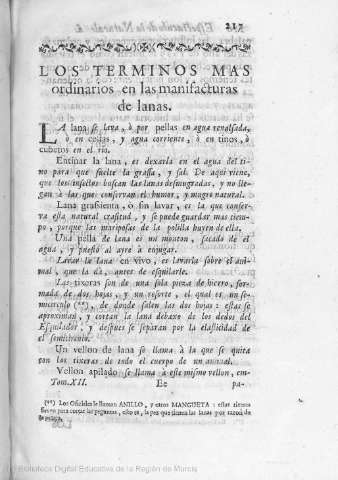 217
LOS TERMINOS MAS
ordinarios en las manifacturas
de lanas.
LA lana se lava, ò por pellas en agua rebalsada,
ò en cestas, y agua corriente, ò en tinos, ò
cubetos en el rio.
Entipar la lana, es dexarla en el agua del ti-
no para que suelte la grassa, y sal. De aqui viene,
que los insectos buscan las lanas desengrasadas, y no lle-
gan à las que conservan el humor, y mugre natural.
Lana grasienta, ò sin lavar, es la que conser-
va esta natural crasitud, y se puede guardar mas tiem-
po, porque las mariposas de la polilla huyen de ella.
Una pella de lana es un monton, sacado de el
agua, y puesto al ayre à enjugar.
Lavar la lana en vivo, es lavarla sobre el ani-
mal, que la dà, antes de esquilarle.
Las tixeras son de una sola pieza de hierro, for-
mada de dos hojas, y un resorte, el qual es un se-
micirculo (**), de donde salen las dos hojas: estas se
aproximan, y cortan la lana debaxo de los dedos del
Esquilador, y despues se separan por la elasticidad de
el semicirculo.
Un vellon de lana se llama à la que se quita
con las tixeras de todo el cuerpo de un animal.
Vellon apilado se llama à este mismo vellon, em-
Tom.XII. Ee pa-
(**) Los Oficiales le llaman ANILLO, y otros MANGUETA: estas tixeras
para cortar las
Biblioteca Digital Educativa de la Región de Murcia